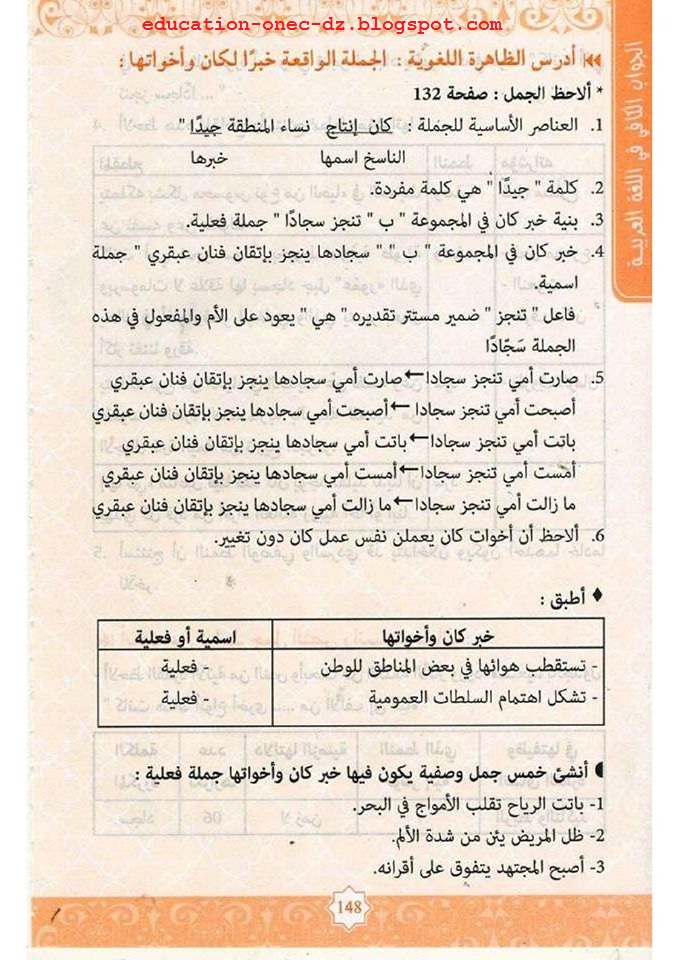 education-onec-dz.blogspot.com
الجواب الكافي في اللغة العربية
أدرس الظاهرة اللغوية : الجملة الواقعة خبرًا لكان وأخواتها :
* ألاحظ الجمل : صفحة 132
1. العناصر الأساسية للجملة : كان إنتاج نساء المنطقة جيدًا "
الناسخ اسمها خبرها
2. كلمة " جيدًا " هي كلمة مفردة.
3. بنية خبر كان في المجموعة " ب " تنجز سجادًا " جملة فعلية.
4. خبر كان في المجموعة " ب " " سجادها ينجز بإتقان فنان عبقري " جملة
اسمية.
فاعل " تنجز " ضمير مستتر تقديره " هي " يعود على الأم والمفعول في هذه
الجملة سَجّادًا
5. صارت أمي تنجز سجادا ← صارت أمي سجادها ينجز بإتقان فنان عبقري
أصبحت أمي تنجز سجادا ← أصبحت أمي سجادها ينجز بإتقان فنان عبقري
باتت أمي تنجز سجادا ← باتت أمي سجادها ينجز بإتقان فنان عبقري
أمست أمي تنجز سجادا ← أمست أمي سجادها ينجز بإتقان فنان عبقري
ما زالت أمي تنجز سجادا ← ما زالت أمي سجادها ينجز بإتقان فنان عبقري
6. ألاحظ أن أخوات كان يعملن نفس عمل كان دون تغيير.
♦ أطبق :
خبر كان وأخواتها اسمية أو فعلية
- تستقطب هوائها في بعض المناطق للوطن - فعلية
- تشكل اهتمام السلطات العمومية - فعلية
أنشئ خمس جمل وصفية يكون فيها خبر كان وأخواتها جملة فعلية :
1- باتت الرياح تقلب الأمواج في البحر.
2- ظل المريض يئن من شدة الألم.
3- أصبح المجتهد يتفوق على أقرانه.
148